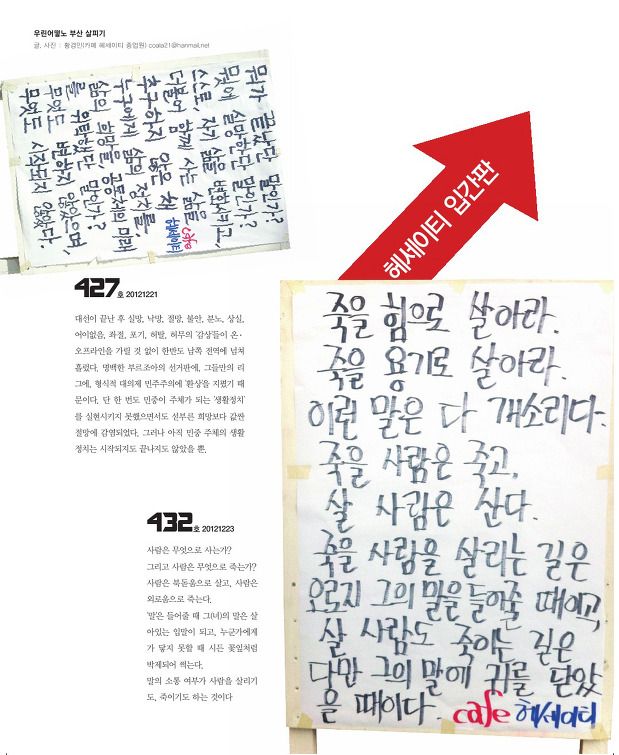 우린어떻노 부산 살피기
글, 사진 : 황경민(카페 헤세이티 종업원) ccola21@hanmail.net
뭐가 끝났단 말인가?
뭣에 실망한단 말인가?
스스로, 자기 삶을 변화시키고,
더불어 함께 사는 삶을
추구하지 않은 채
누구에게 삶의 정치를,
삶의 희망을 공동체의 미래
를 위탁했단 말인가?
무엇도 변하지 않았으며,
무엇도 시작되지 않았다.
cafe 헤세이티
헤세이티 입간판
427호 20121221
대선이 끝난 후 실망, 낙망, 절망, 불안, 분노, 상실,
어이없음, 좌절, 포기, 허탈, 허무의 '감상'들이 온·
오프라인을 가릴 것 없이 한반도 남쪽 전역에 넘쳐
흘렀다. 명백한 부르조아의 선거판에, 그들만의 리
그에, 형식적 대의제 민주주의에 '환상'을 지폈기 때
문이다. 단 한 번도 민중이 주체가 되는 '생활정치'
를 실현시키지 못했으면서도 섣부른 희망보다 값싼
절망에 감염되었다. 그러나 아직 민중 주체의 생활
정치는 시작되지도 끝나지도 않았을 뿐.
432호 20121223
사람은 무엇으로 사는가?
그리고 사람은 무엇으로 죽는가?
사람은 북돋움으로 살고, 사람은
외로움으로 죽는다.
'말'은 들어줄 때 그(녀)의 말은 살
아있는 입말이 되고, 누군가에게
가 닿지 못할 때 시든 꽃잎처럼
박제되어 썩는다.
말의 소통 여부가 사람을 살리기
도, 죽이기도 하는 것이다
죽을 힘으로 살아라.
죽을 용기로 살아라.
이런 말은 다 개소리다.
죽을 사람은 죽고,
살 사람은 산다.
죽을 사람을 살리는 길은
오로지 그의 말을 들어줄 때이고,
살 사람도 죽이는 길은
다만 그의 말에 귀를 닫았
을 때이다. cafe 헤세이티